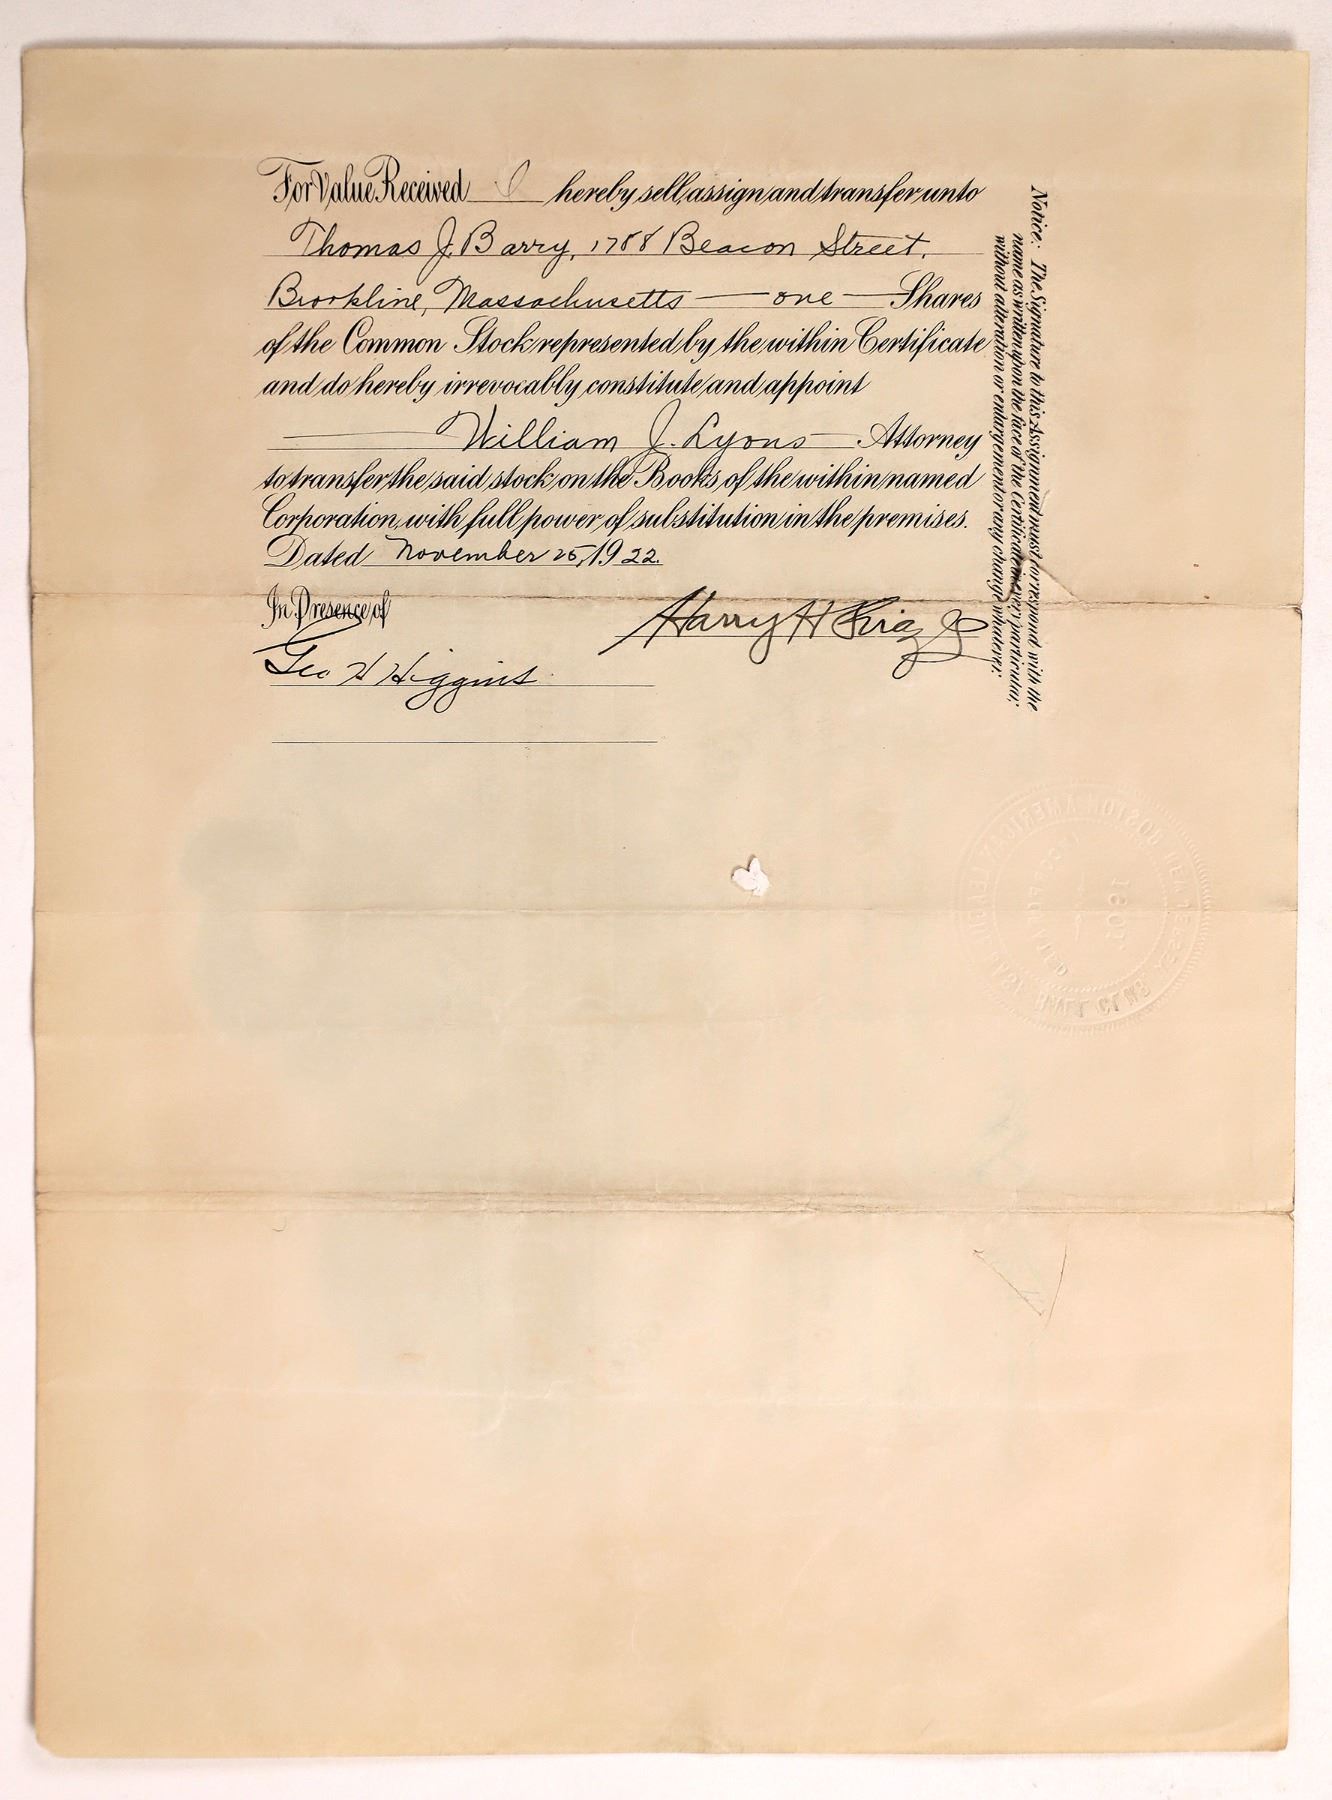 For Value Received I hereby sell, assign and transfer unto
Thomas J. Barry, 1788 Beacon Street,
Brookline, Massachusetts — one — Shares
of the Common Stock represented by the within Certificate
and do hereby irrevocably constitute and appoint
William J. Lyons — Attorney
to transfer the said stock on the Books of the within named
Corporation, with full power of substitution in the premises.
Dated November 25, 1922.
In Presence of
Harry H
Geo H Higgins
Notice: The Signature to this Assignment must correspond with the
name as written upon the face of the Certificate in every particular,
without alteration or enlargement or any change whatever.
BOSTON AMERICAN LEAGUE BASE BALL CLUB
NEW JERSEY
INCORPORATED